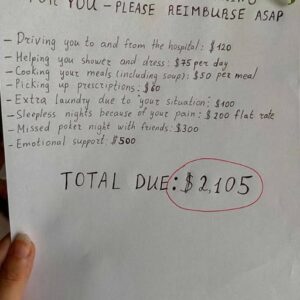 FOR YOU - PLEASE REIMBURSE ASAP
- Driving you to and from the hospital: $120
- Helping you shower and dress: $75 per day
- Cooking your meals (including soup): $50 per meal
- Picking up prescriptions: $60
- Extra laundry due to "your situation": $100
- Sleepless nights because of your pain: $200 flat rate
- Missed poker night with friends: $300
- Emotional support: $500
TOTAL DUE: $2,105